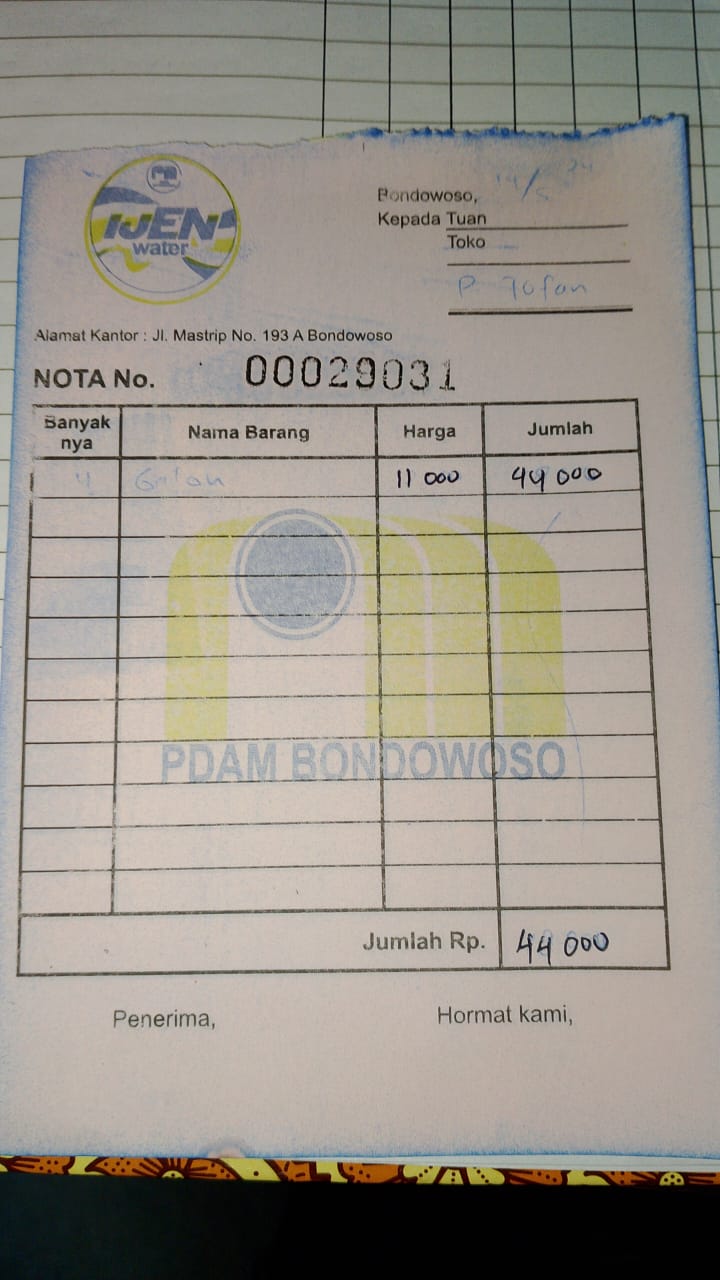 IJEN
water
Bondowoso, 14/5 24
Kepada Tuan
Toko
P. Tofan
Alamat Kantor : Jl. Mastrip No. 193 A Bondowoso
NOTA No. 00029031
Banyak nya Nama Barang Harga Jumlah
4 Galon 11 000 44 000
PDAM BONDOWOSO
Jumlah Rp. 44 000
Penerima, Hormat kami,